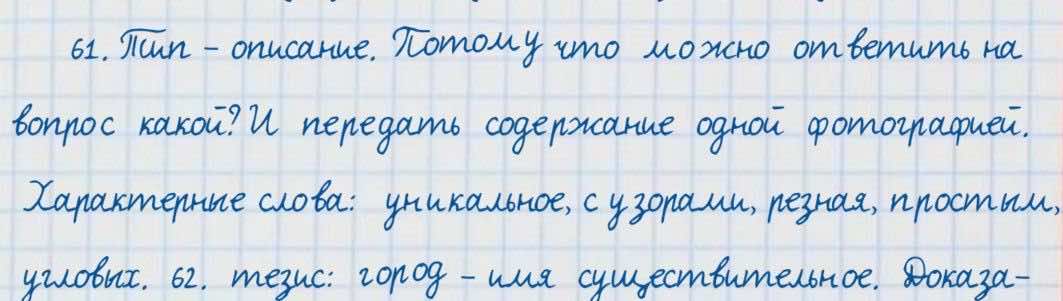 61. Тип - описание. Потому что можно ответить на
вопрос какой? И передать содержание одной фотографией.
Характерные слова: уникальное, с узорами, резная, простым,
угловых. 62. тезис: город - имя существительное. Доказа-